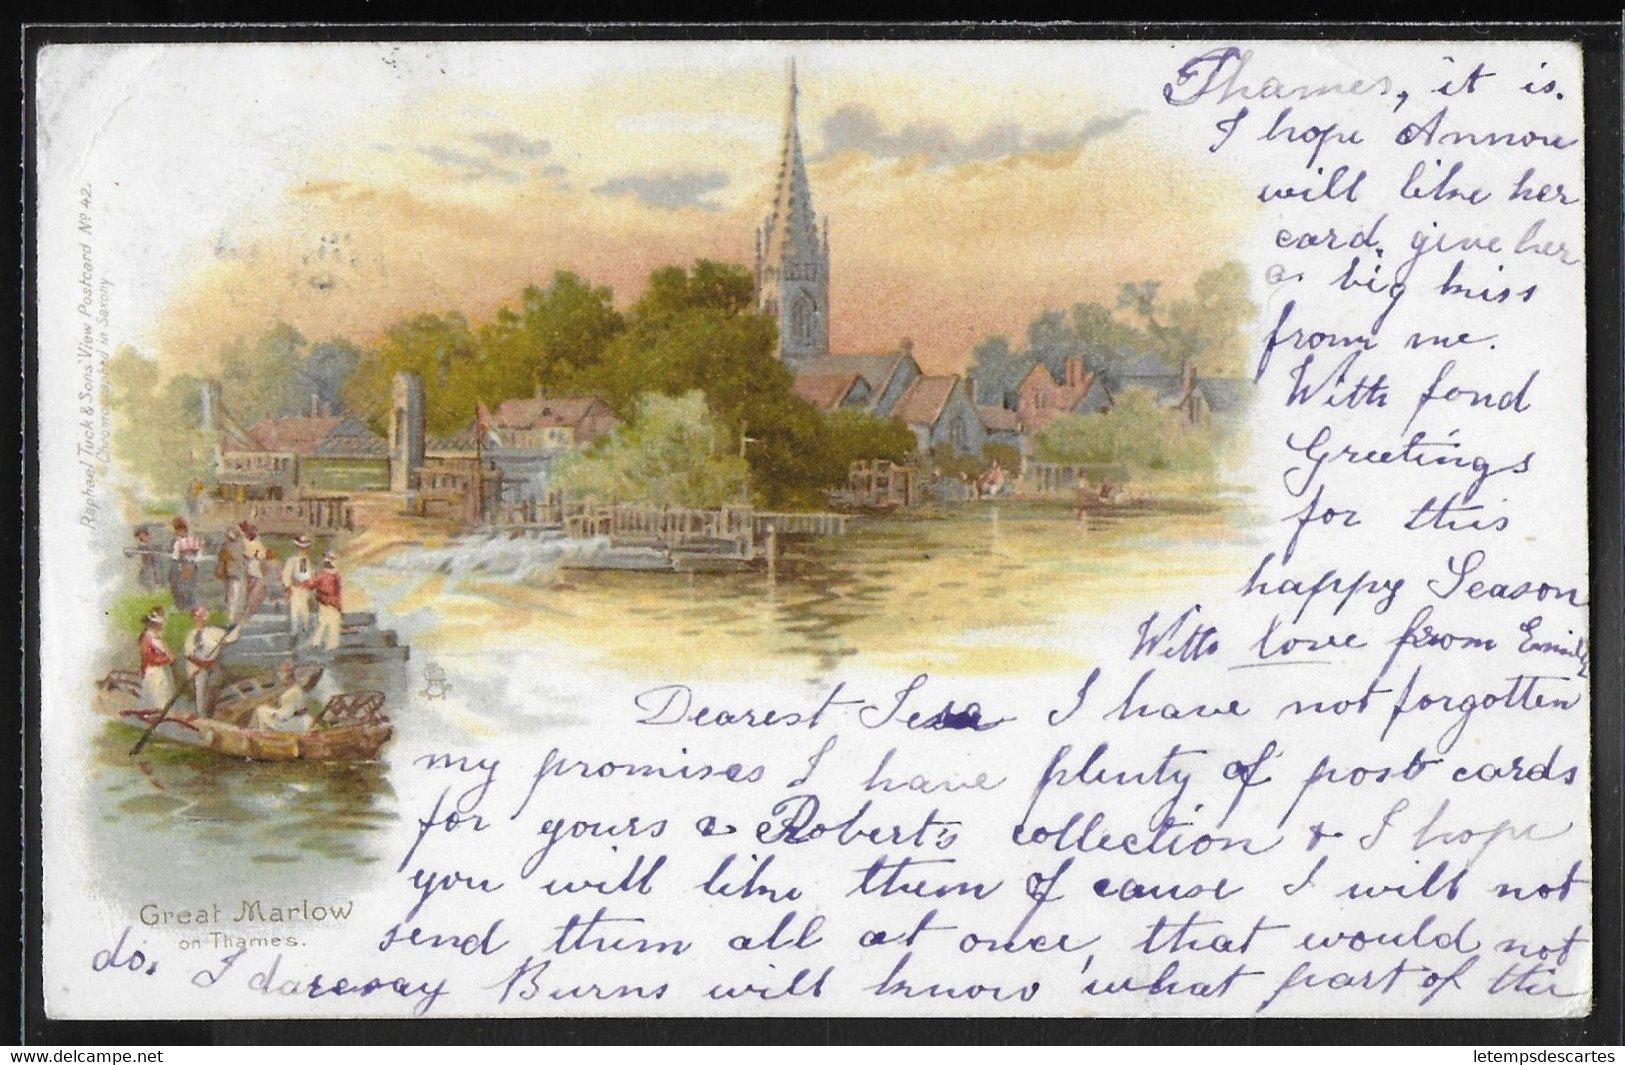 Raphael Tuck & Sons' View Postcard Nº 42.
Chromographed in Saxony
Great Marlow
on Thames.
Dearest I have not forgotten
my promises I have plenty of post cards
for yours & Robert's collection & I hope
you will like them of cause I will not
send them all at once, that would not
do. I daresay Burns will know what part of the
Thames, it is.
I hope Annou
will like her
card. give her
a big kiss
from me.
With fond
Greetings
for this
happy Season
With love from Emily
delcampe.net
letempsdescartes